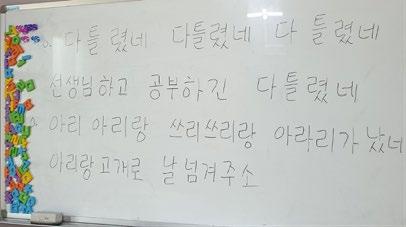 다틀렸네 다틀렸네 다틀렸네
선생님하고 공부하긴 다틀렸네
아리아리랑 쓰리쓰리랑 아라리가 났네
아리랑고개로 날넘겨주소